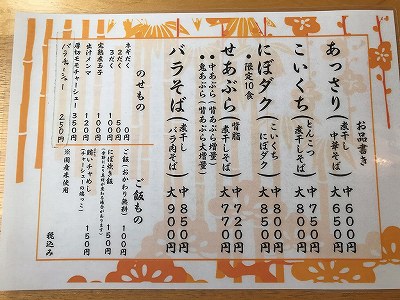 お品書き
あっさり
煮干し
中華そば
中 600円
大 650円
こいくち
とんこつ
煮干しそば
中 750円
大 800円
にぼダク
・限定10食
こいくち
にぼダク
中 800円
大 850円
せあぶら
背脂
煮干しそば
中 720円
大 770円
・中あぶら(背あぶら増量)
・鬼あぶら(背あぶら大増量)
バラそば
煮干し
バラ肉そば
中 850円
大 900円
のせもの
ネギだく 100円
2だく 50円
3だく 100円
完熟煮玉子 100円
出汁メンマ 120円
厚切モモチャーシュー 350円
バラチャーシュー 250円
ご飯もの
ご飯(おかわり無料) 100円
にぼ炊き飯 150円
賄いチャめし 150円
(チャーシューの端っこ)
※国産米使用
税込み